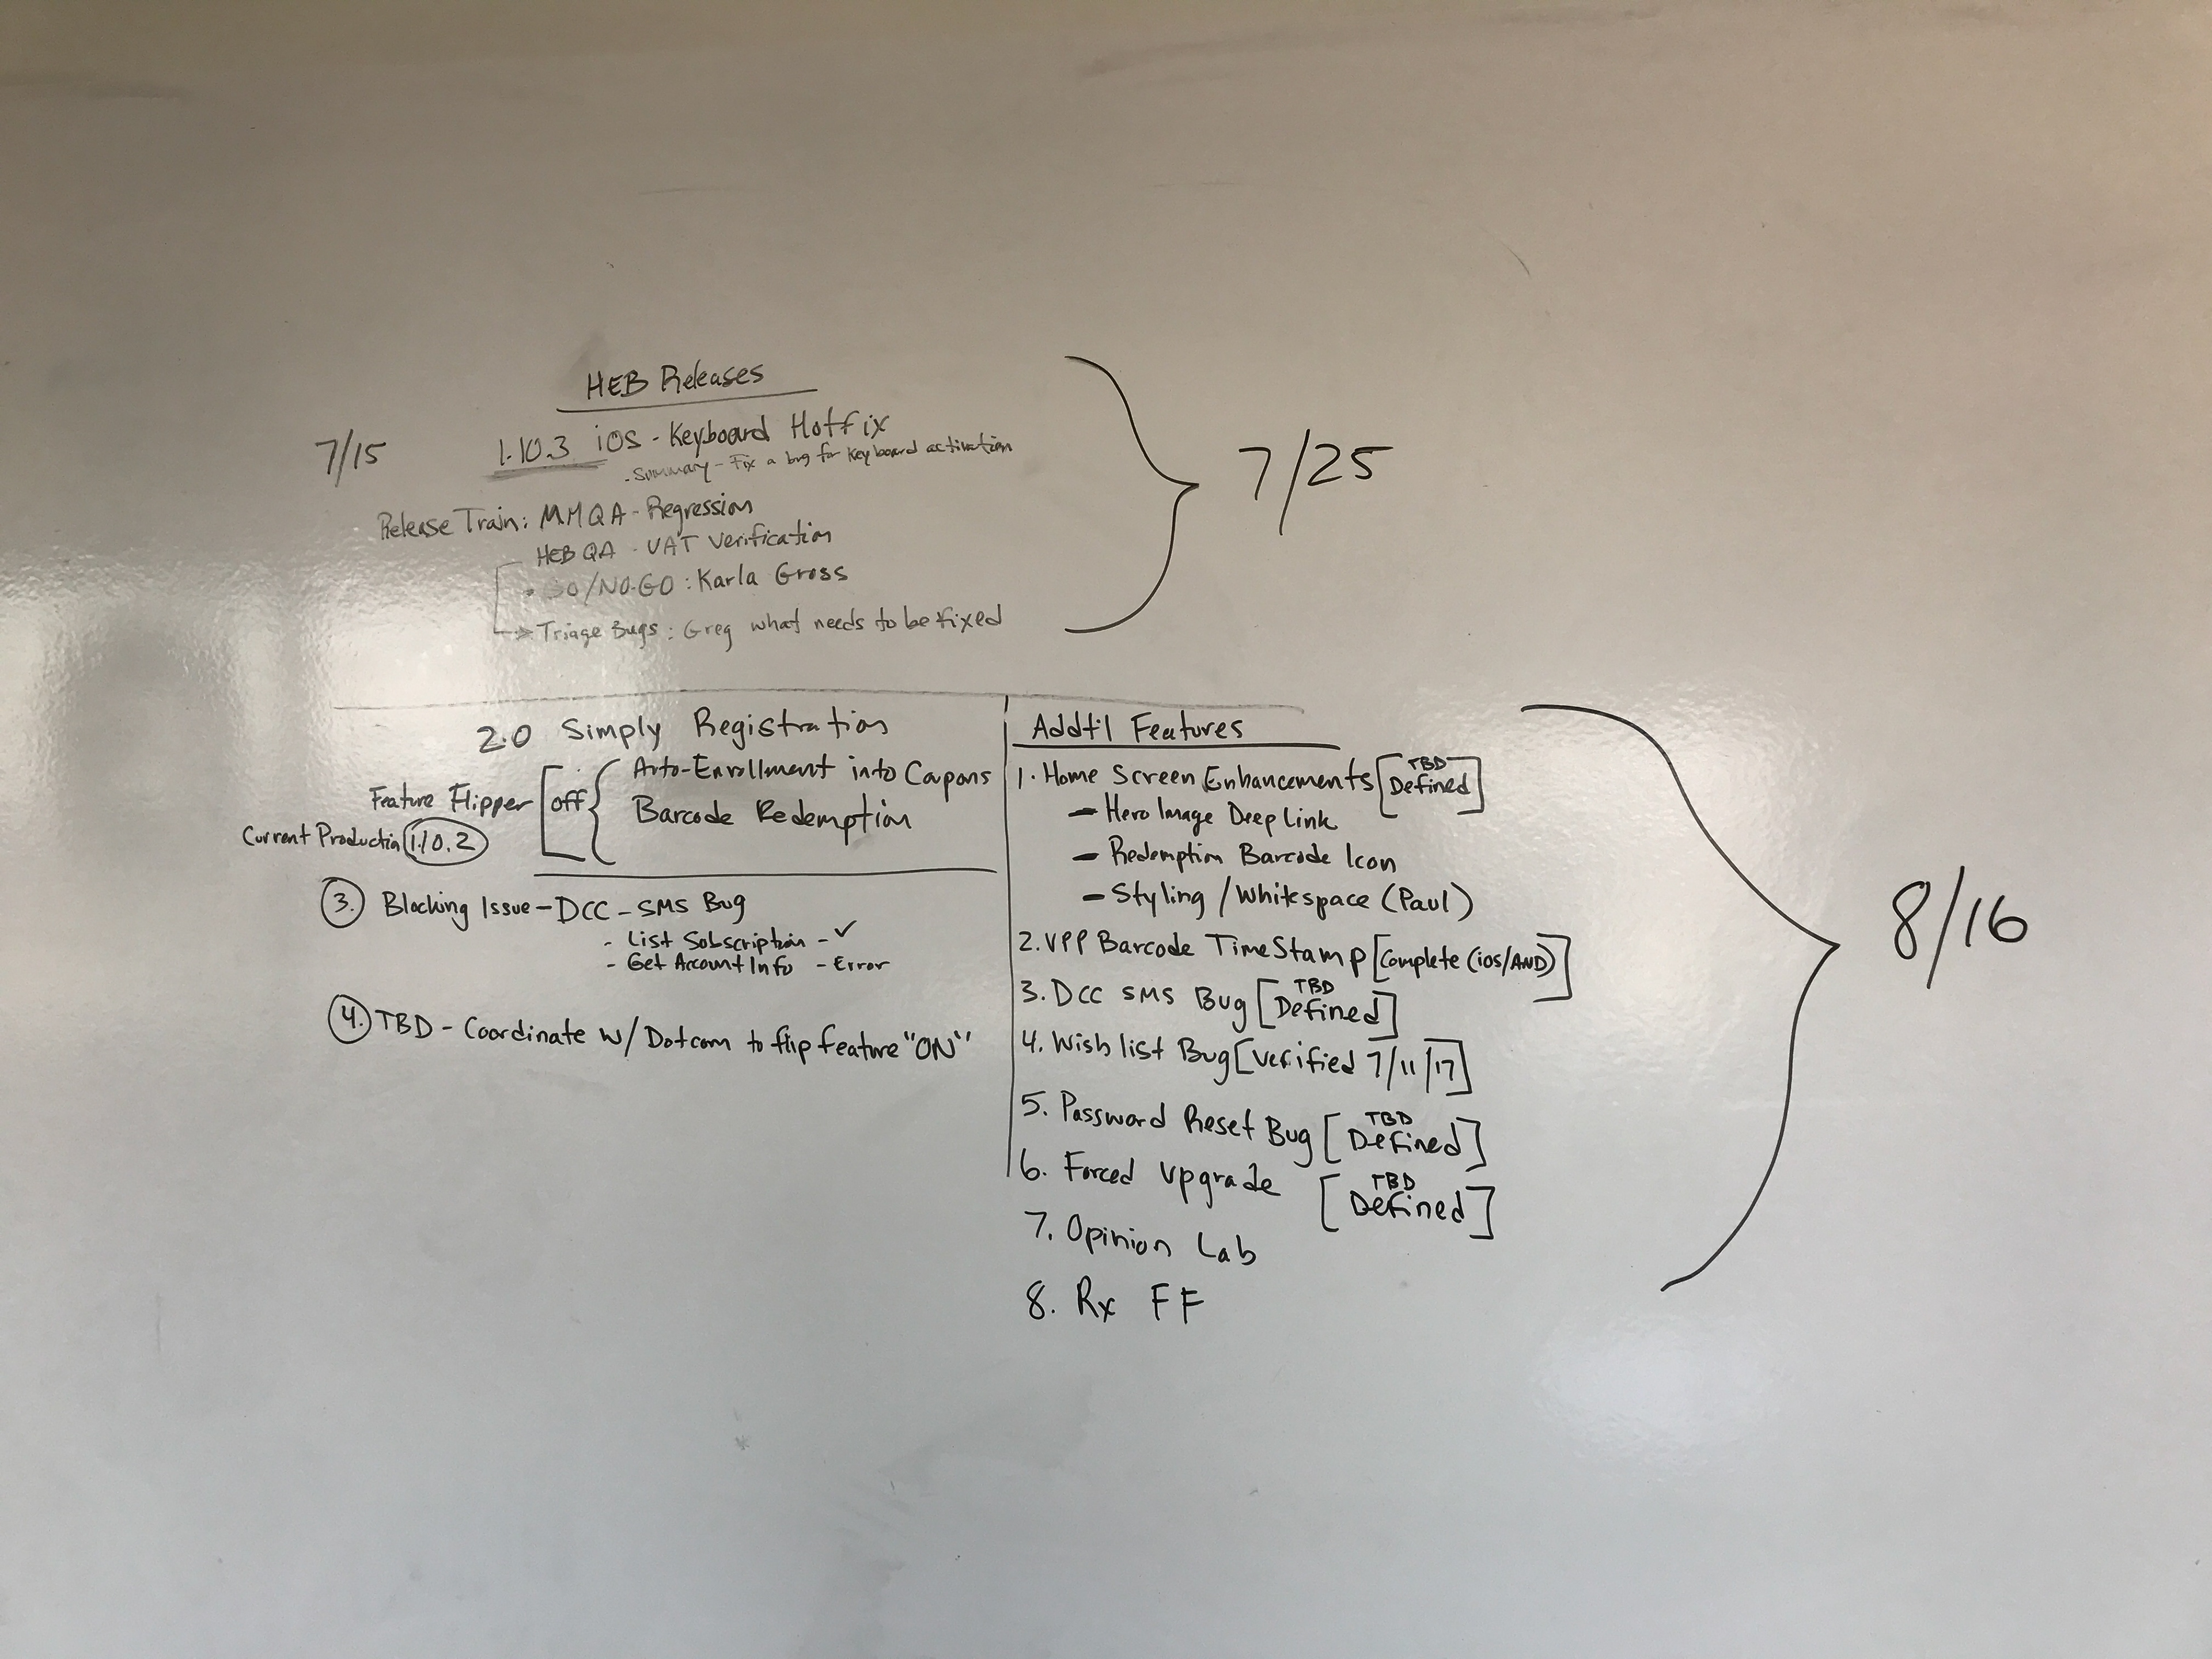 HEB Releases
7/15 1.10.3 iOS - Keyboard Hotfix
- Summary - Fix a bug for keyboard activation
7/25
Release Train: MMQA - Regression
HEB QA - UAT Verification
• GO/NO-GO : Karla Gross
Triage Bugs : Greg what needs to be fixed
2.0 Simply Registration
Feature Flipper [off { Auto-Enrollment into Coupons
Barcode Redemption
Current Productio 1.10.2
3. Blocking Issue - DCC - SMS Bug
- List Subscription - ✓
- Get Account Info - Error
4. TBD - Coordinate w/ Dotcom to flip feature "ON"
Addt'l Features
1. Home Screen Enhancements [TBD Defined]
- Hero Image Deep Link
- Redemption Barcode Icon
- Styling / Whitespace (Paul)
2. VPP Barcode TimeStamp [Complete (ios/AND)]
3. DCC SMS Bug [TBD Defined]
4. Wish list Bug [Verified 7/11/17]
5. Password Reset Bug [TBD Defined]
6. Forced Upgrade [TBD Defined]
7. Opinion Lab
8. Rx FF
8/16